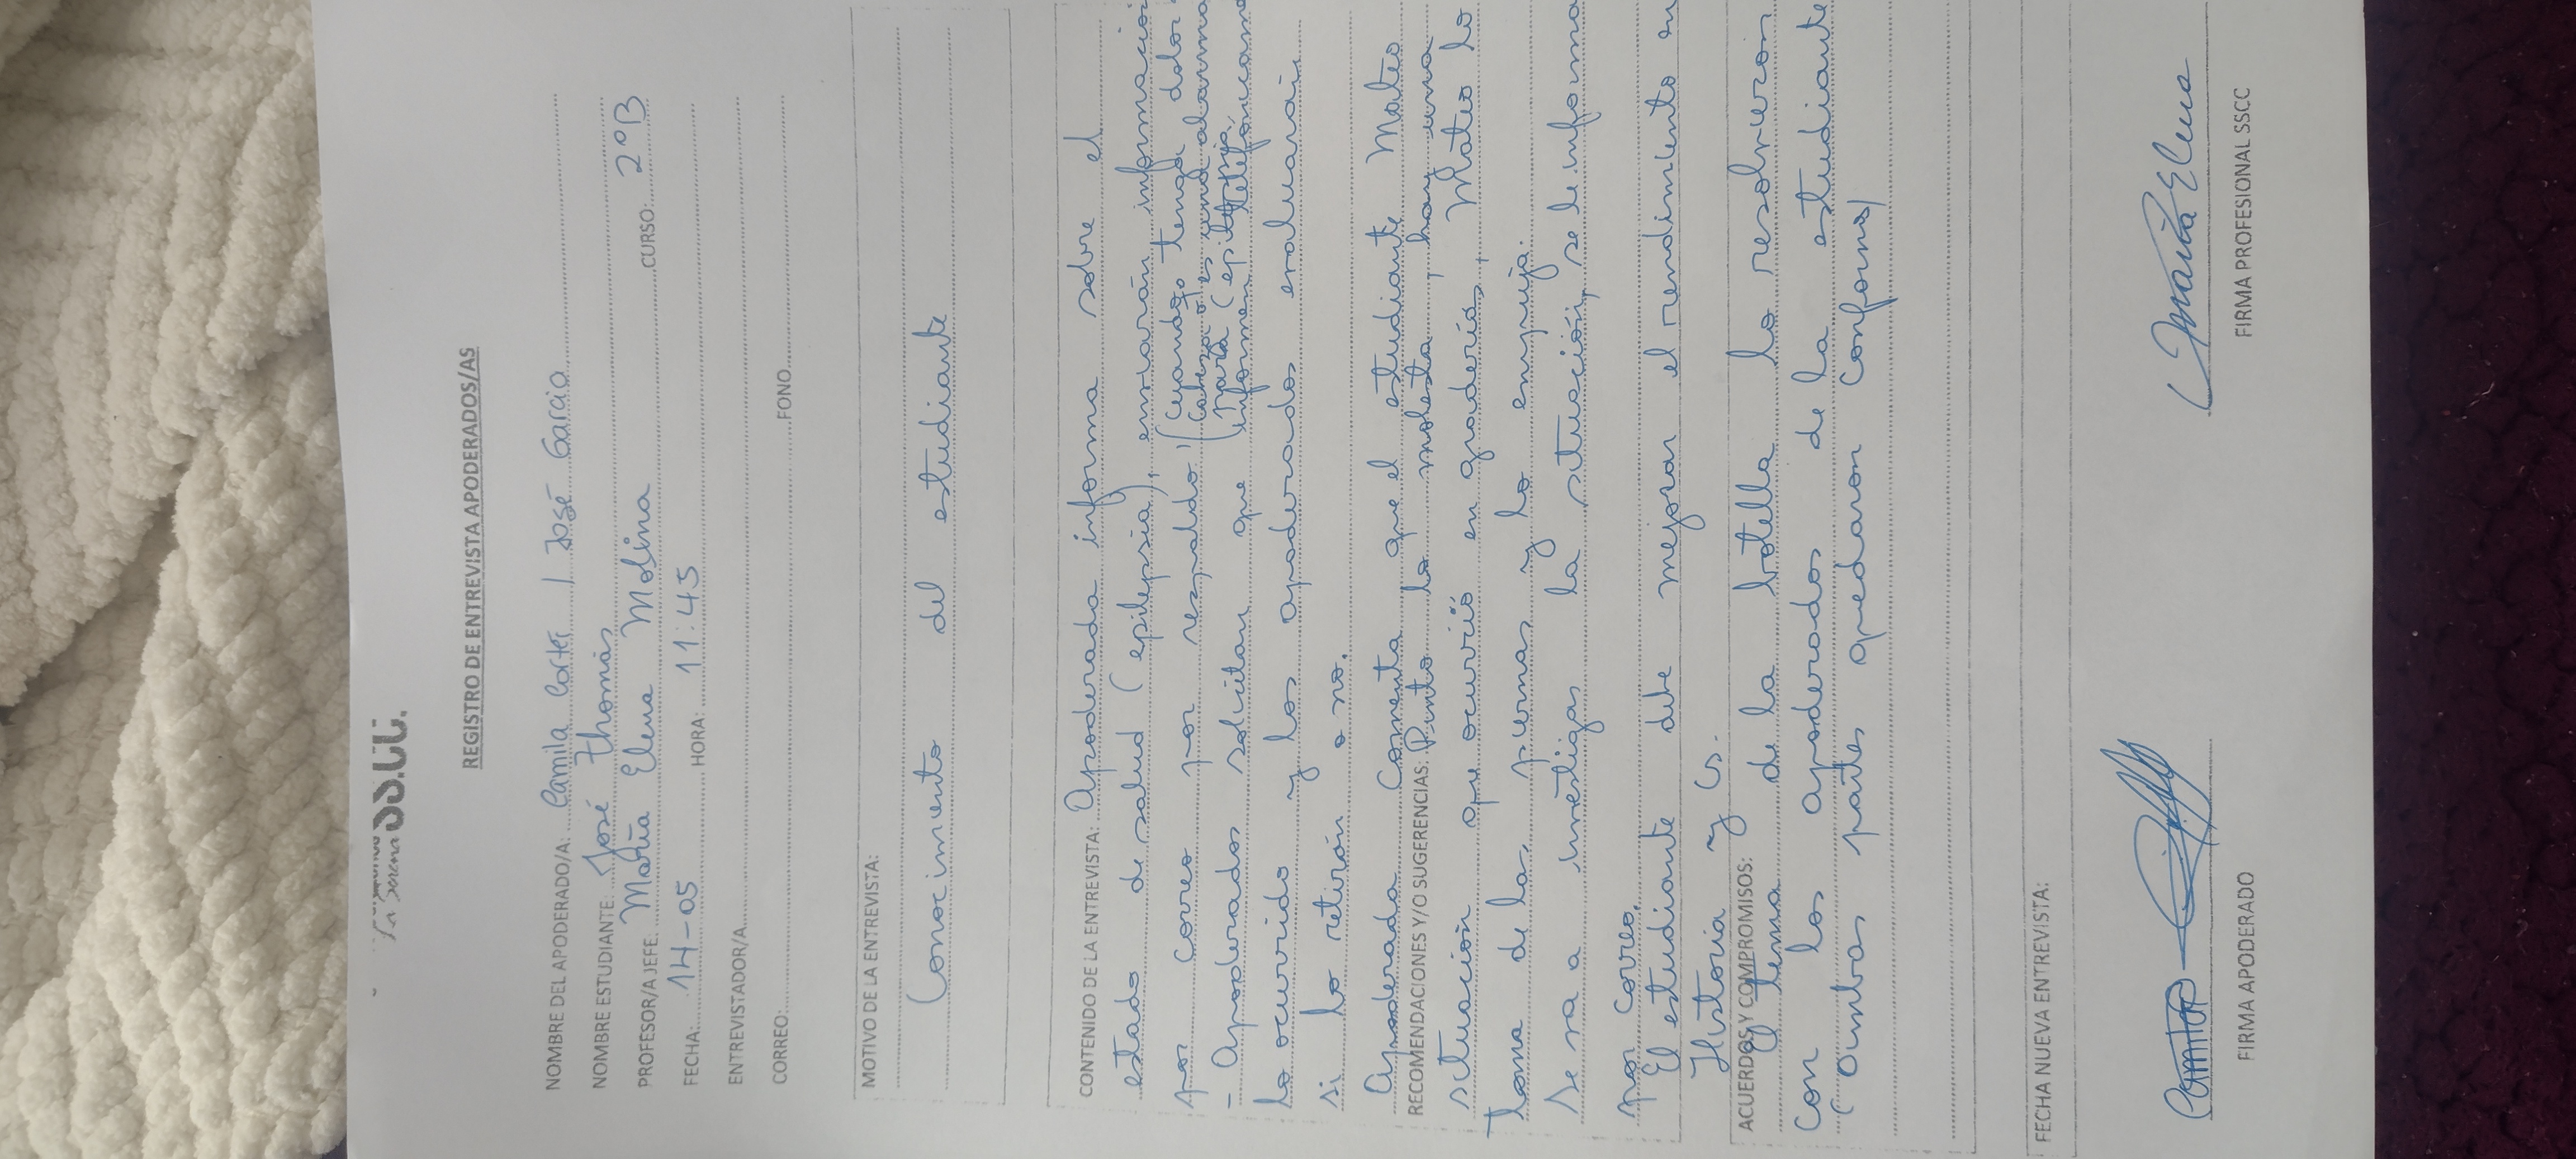 La Serena SS.CC.
REGISTRO DE ENTREVISTA APODERADOS/AS
NOMBRE DEL APODERADO/A: Camila Cortes / José García
NOMBRE ESTUDIANTE: José Thomás
PROFESOR/A JEFE: María Elena Molina CURSO: 2ºB
FECHA: 14-05 HORA: 11:45
ENTREVISTADOR/A
CORREO: FONO
MOTIVO DE LA ENTREVISTA:
Conocimiento del estudiante
CONTENIDO DE LA ENTREVISTA: Apoderada informa sobre el
estado de salud (epilepsia), enviarán informació
por correo por respaldo, (Cuando tenga dolor
cabeza es una alarma
para (epilepsia,
informen telefónicame
- Apoderados solicitan que
lo ocurrido y los apoderados evaluarán
si lo retirán o no.
Apoderada Comenta que el estudiante Mateo
RECOMENDACIONES Y/O SUGERENCIAS: Pinto lo molesta, hay una
situación que ocurrió en gradería, Mateo lo
toma de las piernas y lo empuja.
Se va a investigar la situación, se le informa
por correo.
El estudiante debe mejorar el rendimiento en
Historia y Cs.
ACUERDOS Y COMPROMISOS:
El tema de la botella lo resolvieron
Con los apoderados de la estudiante
(Ambas partes quedaron conforme)
FECHA NUEVA ENTREVISTA:
María Elena
FIRMA APODERADO FIRMA PROFESIONAL SSCC